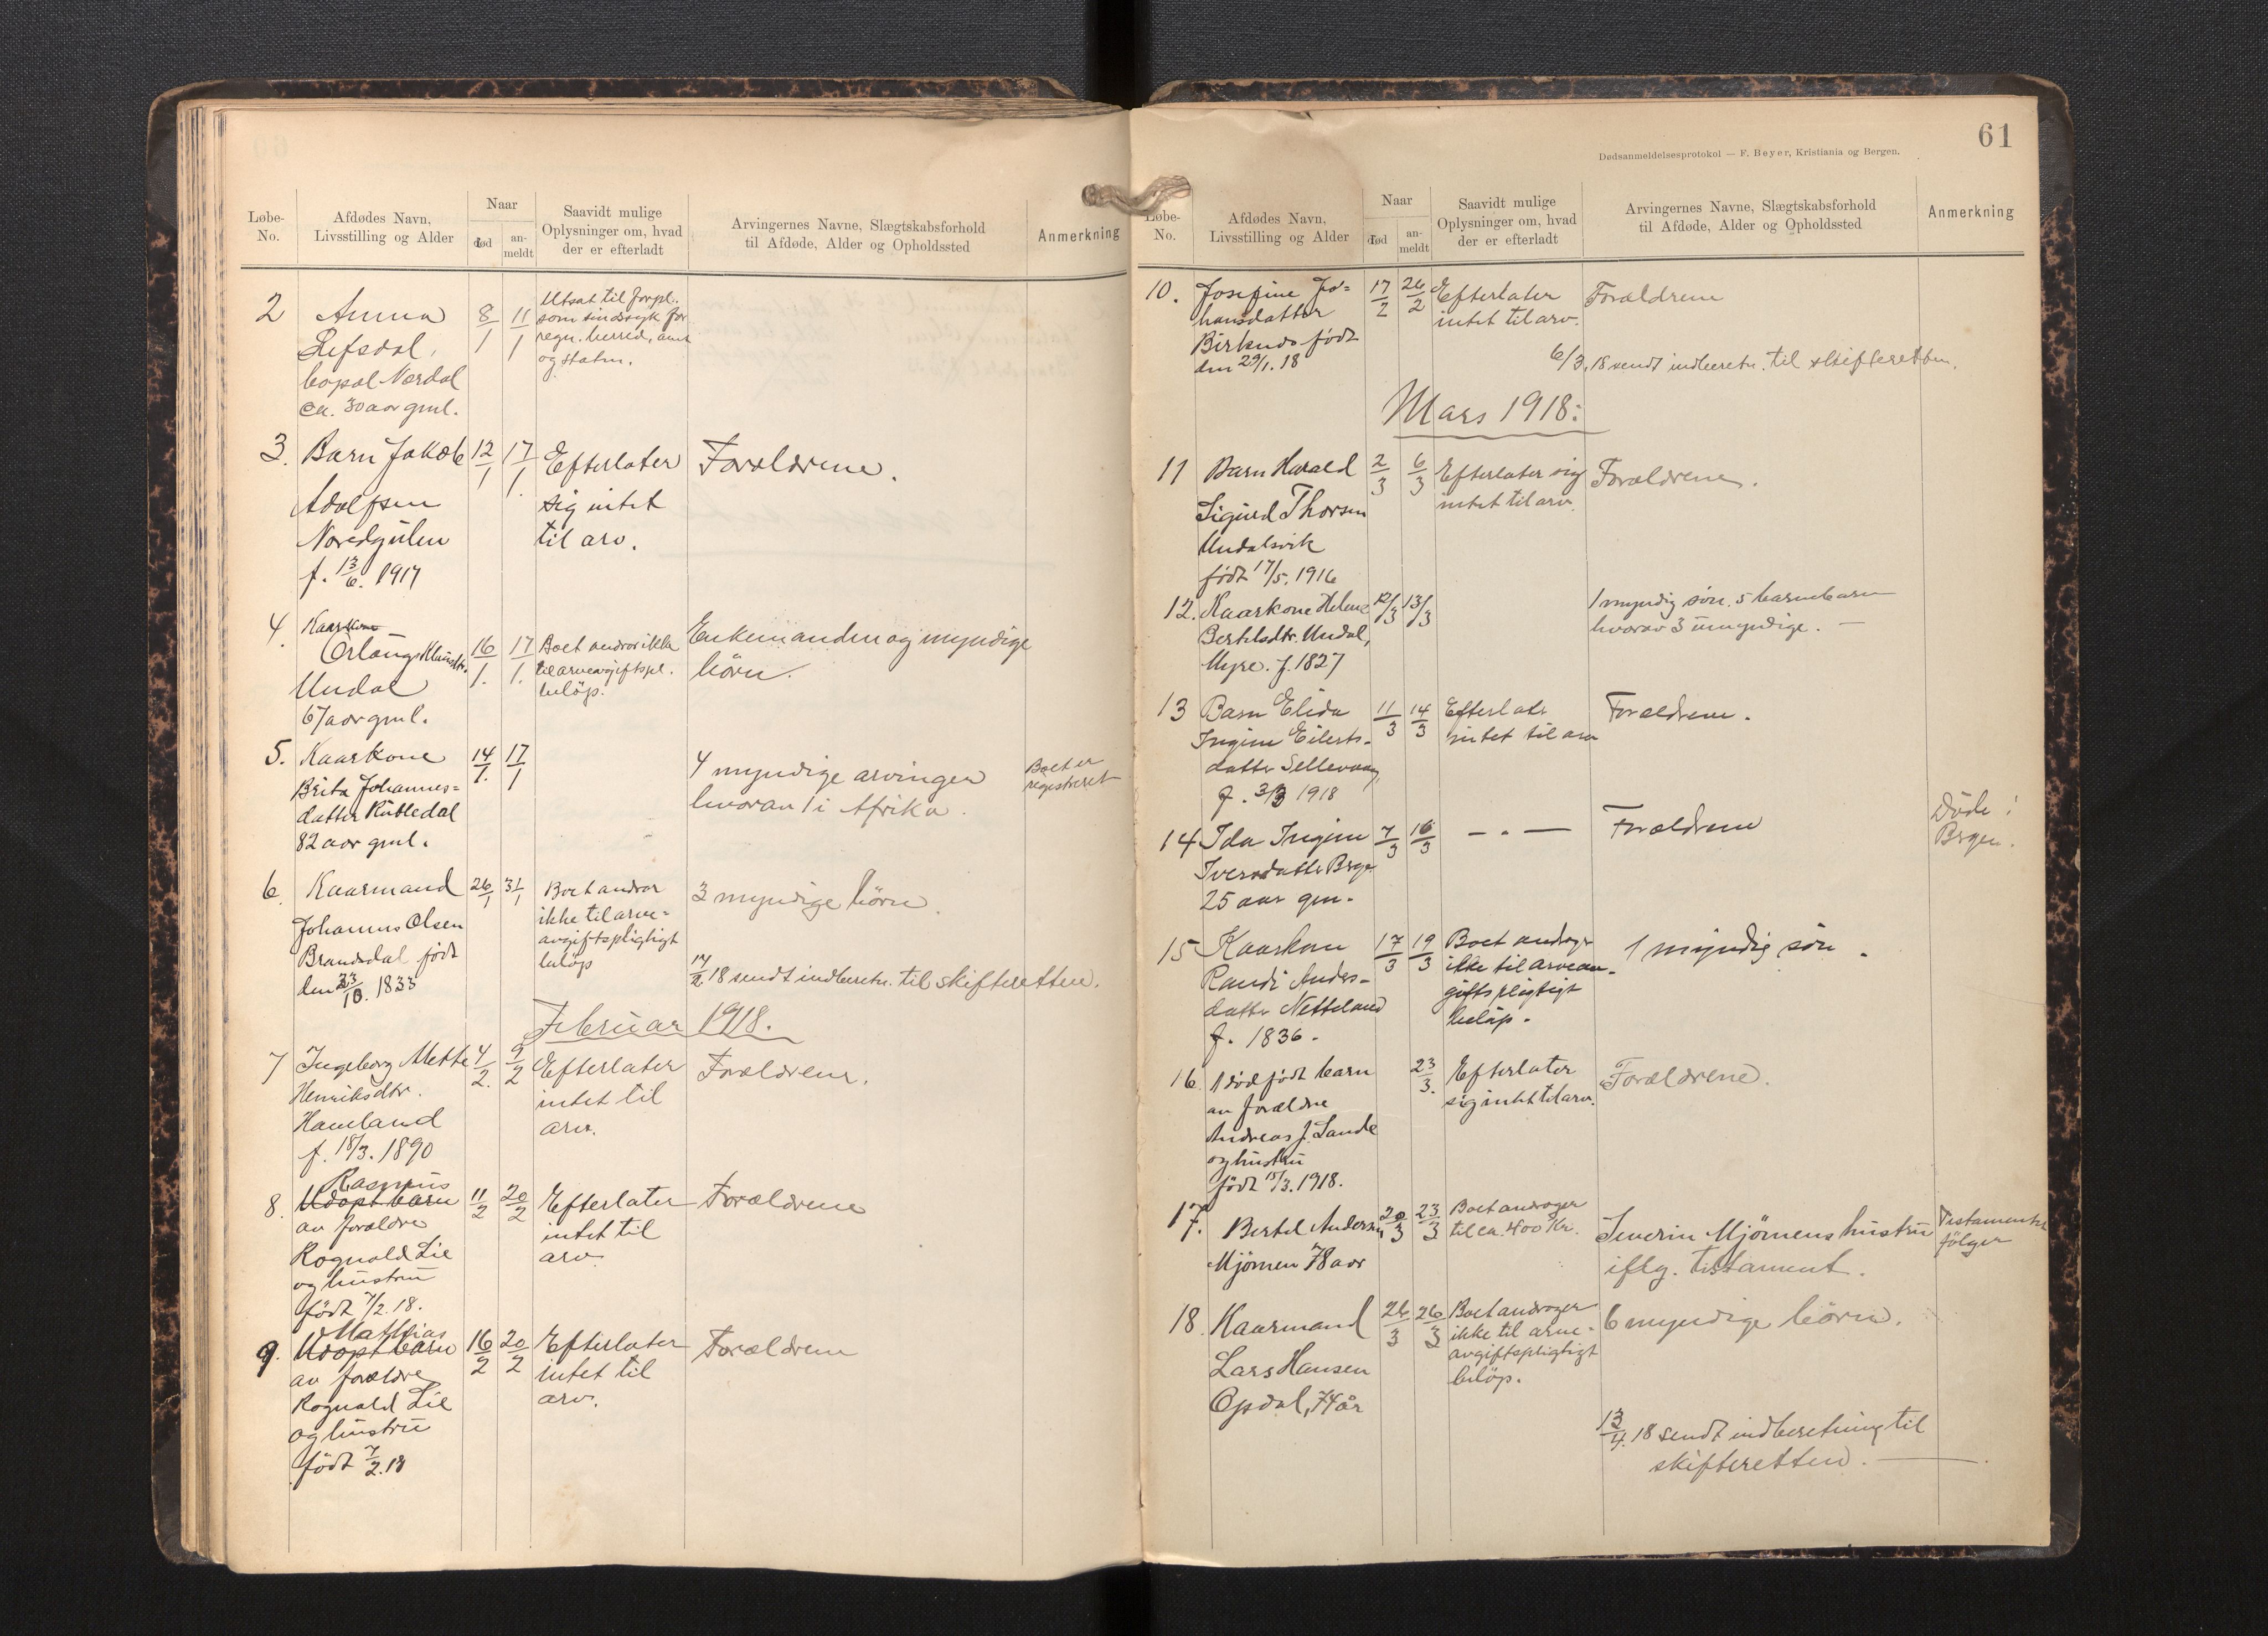 Løbe-No.
Afdødes Navn, Livsstilling og Alder
Naar
død
an-meldt
Saavidt mulige Oplysninger om, hvad der er efterladt
Arvingernes Navne, Slægtskabsforhold til Afdøde, Alder og Opholdssted
Anmerkning
2 Anna 8/1 11/1 Utsat til forpl.
Refsdal, som sindssyk for
bopal Nordal regn. herred, amt
ca. 30 aar gml. og staten.
3. Barn Jakob 12/1 17/1. Efterlater Forældrene.
Adolfsen sig intet
Nordgulen til arv.
f. 13/6. 1917
4. Kaarkone
16/1. 17/1. Boet andrar ikke Enkemanden og myndige
Undal til arveavgiftspl. börn.
67 aar gml. belöp.
5. Kaarkone 14/1. 17/1 4 myndige arvinger Boet er
Brita Johannes= hvorav 1 i Afrika. registreret
datter Rutledal
82 aar gml.
6. Kaarmand 26/1 31/1 Boet andrar 3 myndige börn.
Johannes Olsen ikke til arve=
Brandsdal født avgiftspligtigt
den 23/10. 1833 belöp
14/2 18 sendt indberetn. til skifteretten.
Februar 1918.
7 Ingeborg Mette 4/2. 9/2 Efterlater Forældrene.
Henriksdtr. intet til
Haveland arv.
f. 18/3. 1890
Rasmus
8. Udøpt barn 11/2 20/2 Efterlater Forældrene
av forældre intet til
Rognald Lie arv.
og hustru
født 7/2. 18.
Mathias
9. Udøpt barn 16/2 20/2 Efterlater Forældrene
av forældre intet til
Rognald Lie arv.
og hustru
født 7/2. 18
61
Dødsanmeldelsesprotokol — F. Beyer, Kristiania og Bergen.
Løbe-No.
Afdødes Navn, Livsstilling og Alder
Naar
død
an-meldt
Saavidt mulige Oplysninger om, hvad der er efterladt
Arvingernes Navne, Slægtskabsforhold til Afdøde, Alder og Opholdssted
Anmerkning
10. Josefine Jo= 17/2 26/2 Efterlater Forældrene
hansdatter intet til arv.
født
den 29/1. 18
6/3. 18 sendt indberetn. til skifteretten.
Mars 1918:
11 Barn Harald 2/3 6/3 Efterlater sig Forældrene.
Sigurd Thorsen intet til arv.
Undalsvik
født 17/5. 1916
12. Kaarkone Helene 12/3 13/3 1 myndig søn. 5 barnebarn
Bertelsdtr. Undal, hvorav 3 umyndige. —
Myre. f. 1827
13 Barn Elida 11/3 14/3 Efterlater Forældrene.
Ingine Eilerts- intet til arv
datter Sellevaag
f. 3/3 1918
14 Ida Ingine 7/3 16/3 — " — Forældrene Døde i
Iversdatter Brge Brgen.
25 aar gm.
15 Kaarkone 17/3 19/3 Boet andrager 1 myndig søn.
Randi Anders- ikke til arveav-
datter Netteland giftspligtigt
f. 1836. belöp.
16. 1 død født barn 23/3. Efterlater Forældrene.
av forældre sig intet til arv.
Andreas J. Lande
og hustru
født 15/3. 1918.
17. Bertel Andersen 20/3 23/3 Boet andrager Severin Mjömens hustru Testamente
Mjömen 78 aar til ca. 400 Kr. iflg. testament. følger
18. Kaarmand 24/3 26/3 Boet andrager 6 myndige börn.
Lars Hansen ikke til arve-
Opdal, 74 år avgiftspligtigt
belöp.
13/4. 18 sendt indberetning til
skifteretten. —